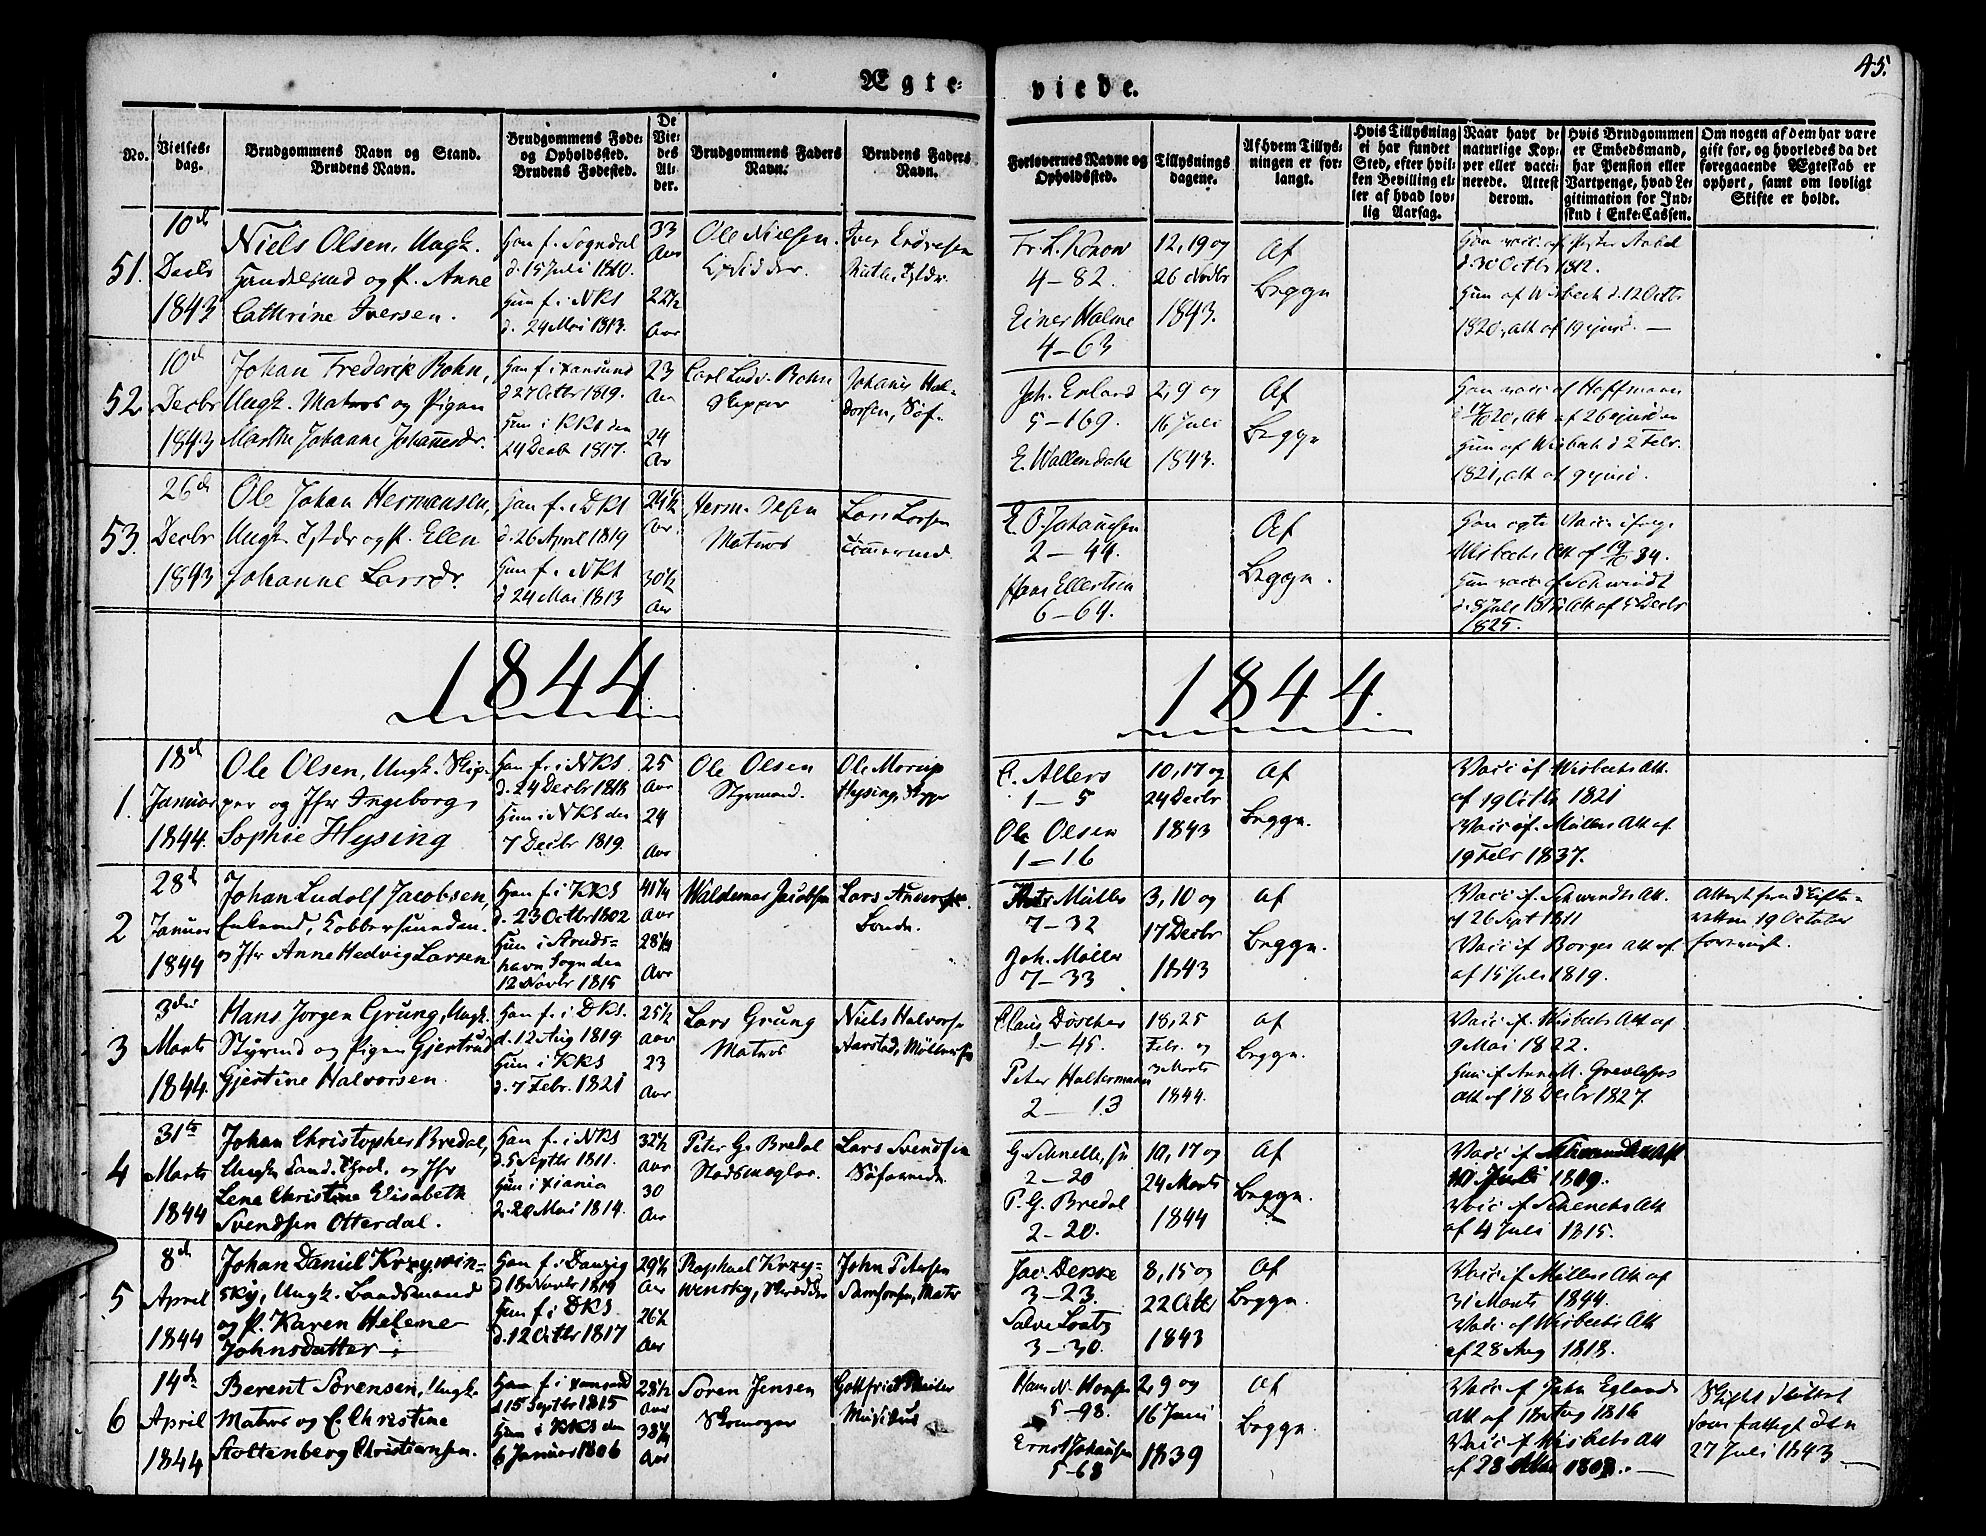 45.
Ægte-
viede.
No.
Vielses-
dag.
Brudgommens Navn og Stand.
Brudens Navn.
Brudgommens Føde-
og Opholdssted.
Brudens Fødested.
De
Vie-
des
Al-
der.
Brudgommens Faders
Navn.
Brudens Faders
Navn.
Forlovernes Navne og
Opholdssted.
Tillysnings
dagene.
Af hvem Tillys-
ningen er for-
langt.
Hvis Tillysning
ei har fundet
Sted, efter hvil-
ken Bevilling el-
ler af hvad lov-
lig Aarsag.
Naar havt de
naturlige Kop-
per eller vacci-
nerede. Attest
derom.
Hvis Brudgommen
er Embedsmand,
har Pension eller
Vartpenge, hvad Le-
gitimation for Ind-
skud i Enke-Cassen.
Om nogen af dem har være
gift før, og hvorledes da det
foregaaende Ægteskab er
ophørt, samt om lovligt
Skifte er holdt.
51.
10de
Decbr
1843
Niels Olsen, Ungk.
og P. Anne
Cathrine Iversen.
Han f. Sogndal
d. 15 Juli 1810.
Hun f. i NKS
d. 24 Mai 1813.
33
Aar
Aar
Ole Nielsen
Iver
Fr. L. Konow
4-82.
Einer Holme
4-63
12, 19 og
26 Novbr
1843.
Af
Begge
d. 30 Octbr 1812.
Hun af Wisbech d. 12 Octb
1820, att af
52.
10de
Decbr
1843
Johan Frederik Bohn,
Ungk. Matros og Pigen
Marthe Johanne Johannesdr.
d 27 Octbr 1819.
Hun i KKS den
24 Decbr 1817.
23
Aar
24
Aar
Carl Ludv. Bohn
Skipper
Johannes Hal-
dorsen, Søf.
Joh. Enland
5-169.
E. Wallendahl
2, 9 og
16 Juli
1843.
Af
Begge
Han vacc af Hoffmann
Hun af Wisbech d 2 Febr.
1821, att af
53.
26de
Decbr
1843
Ole Johan Hermansen,
Ungk. og P. Ellen
Johanne Larsdr.
Han f. i DKS
d. 26 April 1819
Hun f. i NKS
d 24 Mai 1813
24½
Aar.
30½
Aar
Herm. Olsen
Matros
Lars Larsen
Tømmermd.
E. O. Johannsen
2-44.
Hans Ellertsen
6-64.
Af
Begge.
Wisbechs Att af
Hun vacc af Schwindt
Att af 5 Decbr
1825.
1844
1844.
1.
18de
Januar
1844.
Ole Olsen, Ungk. Skip-
per og Jfr Ingeborg
Sophie Hysing
Han f. i NKS
d. 24 Decbr 1818
Hun i NKS den
7 Decbr 1819.
25
Aar
24
Aar
Ole Olsen
Styrmand.
Ole Morup
Hysing,
C. Allers
1-5
Ole Olsen
1-16
10, 17 og
24 Decbr
1843
Af
Begge.
Vacc if Wisbechs Att.
af 19 Octbr 1821
Vacc if. Møllers Att af
19 Febr 1837.
2
28de
Januar
1844
Johan Ludolf Jacobsen,
Enkemd, Kobbersmeden.
og Jfr Anne Hedvig Larsen
Han f. i KKS
d. 23 Octbr 1802
Hun i Arnds-
havn Sogn den
12 Novbr 1815
41¼
Aar
28¼
Aar
Waldemar Jacobsen
Lars Andersen
Bonde.
Müller
7-32
Joh. Møller
7-33
3, 10 og
17 Decbr
1843
af
Begge.
Vacc if Schwindts Att.
af 26 Sept 1811
Vacc if Borges Att af
af 15 Juli 1819.
Attest fra Skifte-
retten 19 October
forevist.
3
3die
Marts
1844.
Hans Jørgen Grung, Ungk.
Styrmd og Pigen Gjertrud
Gjertine Halvorsen.
Han f. i DKS.
d. 12 Aug 1819.
Hun i KKS
d. 7 Febr. 1821
25½
Aar
23
Aar
Lars Grung
Matros
Niels Halvorsen
Aarstad, Møllersv
Claus Döscher
1-45.
Peter Haltermann
2-13
18, 25
Febr. og
3 Marts
1844.
af
Begge.
Vacc if. Wisbechs Att af
9 Mai 1822.
Hun if Anne M. Grevlefos
Att af 18 Decbr 1827.
4
31te
Marts
1844
Johan Christopher Bredal,
Ungk. Cand. Theol. og Jfr
Lene Christine Elisabeth
Svendsen Otterdal.
Han f. i NKS
d. 5 Septbr 1811.
Hun i Xiania
d. 20 Mai 1814.
32½
Aar
30
Aar
Peter G. Bredal
Stadsmægler.
Lars Svendsen
Søfarende.
G. Schnelle,
2-20
P. G. Bredal
2-20.
10, 17 og
24 Marts
1844
Af
Begge.
Vacc if
Juli 1809.
Vacc if Schencks Att
af 4 Juli 1815.
5
8de
April
1844
Johan Daniel Krzywin-
sky, Ungk. Bandsmand
og P. Karen Helene
Johnsdatter
Han f. i Danzig
d 18 Novbr 1819
Hun f. i DKS
d. 12 Octbr 1817
Aar
26½
Aar
Raphael Krzy-
winsky, Skrædder
John Petersen
Samsonsen, Matr
Jac. Dekke
3-23.
Salve Loatz
3-30.
8, 15 og
22 Octbr
1843
Af
Begge.
Vacc if Møllers Att af
31 Marts 1844.
Vacc af Wisbechs Att
af 28 Aug 1818.
6
14de
April
1844
Berent Sørensen, Ungk.
Matros og E. Christine
Stoltenberg Christiansen.
Han f. i
d 15 Septbr 1815
Hun i KKS den
6 Januar 1806
28½
Aar
38¼
Aar
Søren Jensen
Skomager
Gottfried
Musikus
Hans N. Hansen
5-98.
Ernst Johansen
5-68
2, 9 og
16 Juni
1839
af
Begge.
Vacc if John Eglands
Att af 1816
Vacc if Wisbechs Att
af 28
Skifte sluttet
som fattigt den
27 Juli 1843